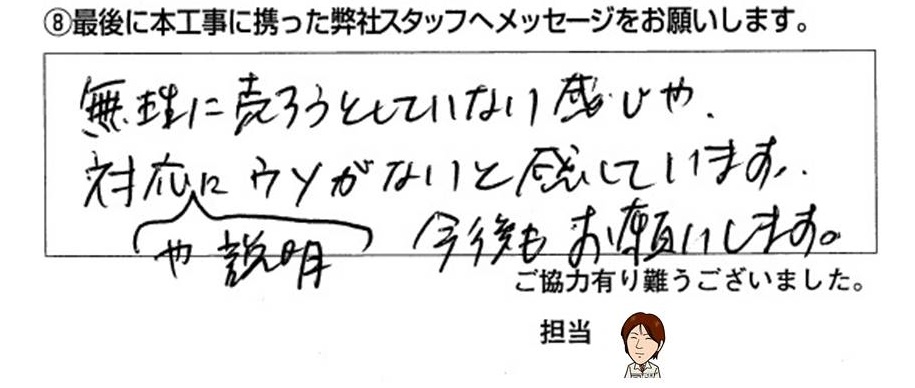 ⑧最後に本工事に携った弊社スタッフへメッセージをお願いします。
無理に売ろうとしていない感じや、
対応にウソがないと感じています。
や説明
今後もお願いします。
ご協力有り難うございました。
担当